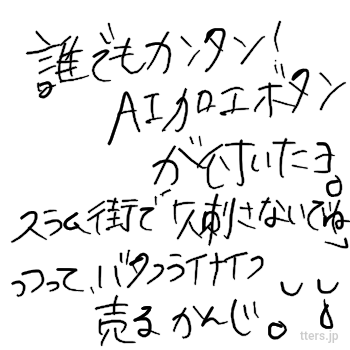 誰でもカンタン!
AI加工ボタン
が付いたヨ。
スラム街で「人刺さないでね」
っつって、バタフライナイフ
売るかんじ。
tters.jp